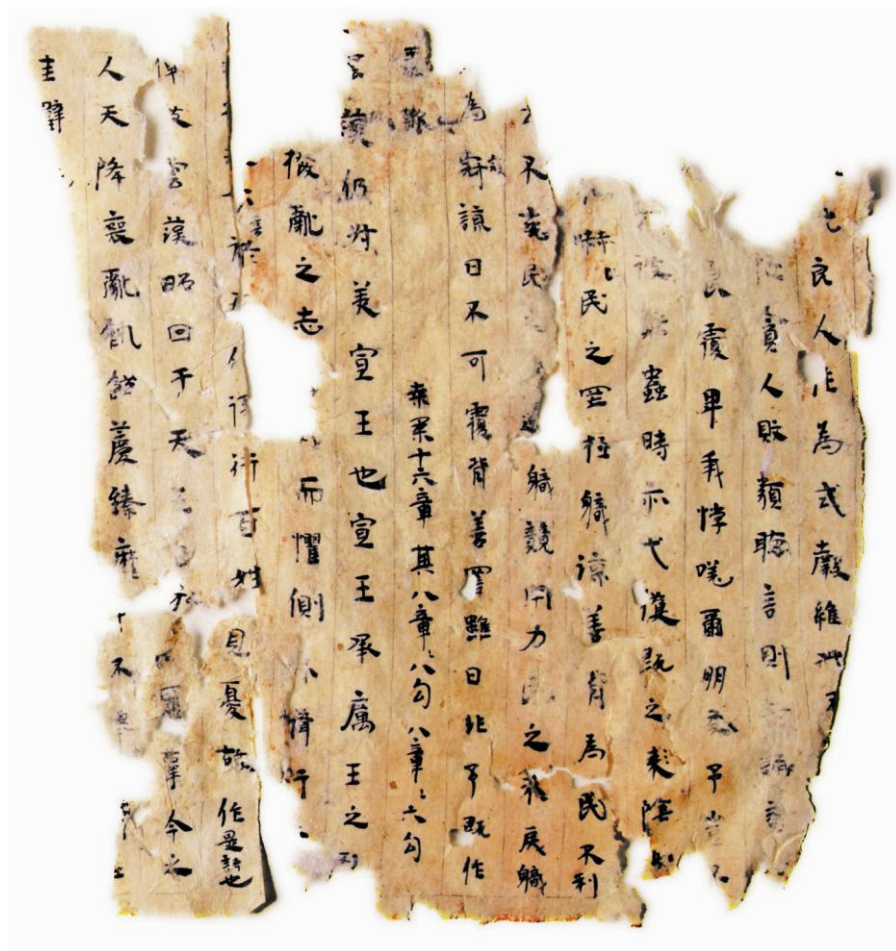 良人作為式穀維不
貪人敗類聽言則誦言
良覆卑我悖嗟爾朋友予豈不
彼飛蟲時亦弋獲既之來陰
赫〻民之罔極職諒善背為民不利
不克民職競用力民之未戾職
為寇諒曰不可覆背善詈雖曰非予既作
桑柔十六章其八章〻八句八章〻六句
雲漢仍叔美宣王也宣王承厲王之烈
撥亂之志而懼側脩行
於王化復行百姓見憂故作是詩也
倬彼雲漢昭回于天王辜今之
人天降喪亂飢饉薦臻靡不
圭璧